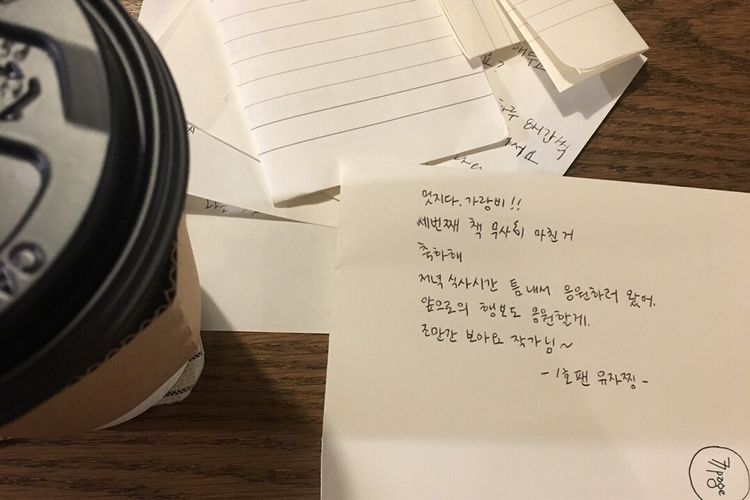 멋지다. 가랑비!!
세번째 책 무사히 마친거
축하해
저녁 식사시간 틈내서 응원하러 왔어.
앞으로의 행보도 응원할게.
조만간 보아요 작가님~
- 1호팬 유자찡 -
77page